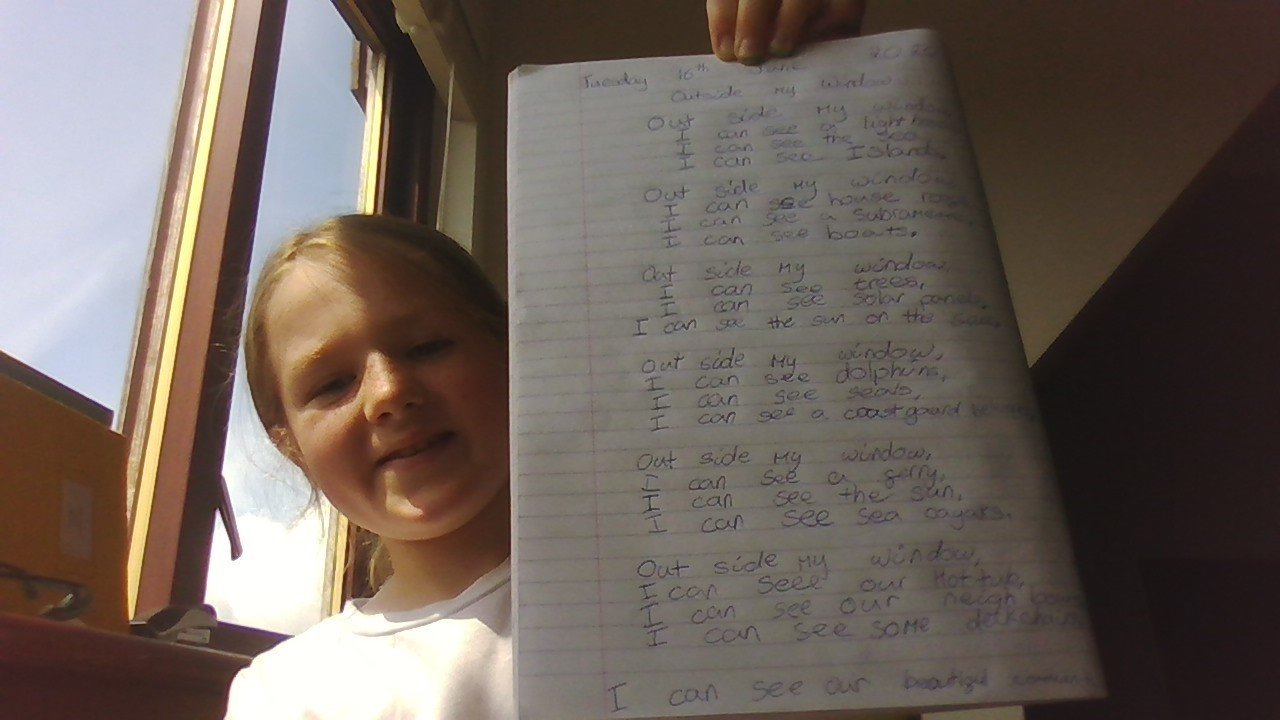 Tuesday 16th June 2020
Outside My window
Out side My window
I can see a light house
I can see the sea
I can see Islands,
Out side My window
I can see house roofs
I can see a
I can see boats,
Out side My window,
I can see trees,
I can see solar panels,
I can see the sun on the sea,
Out side My window,
I can see dolphins,
I can see seals,
I can see a coastgaurd
Out side My window,
I can see a ferry,
I can see the sun,
I can see sea cayaks,
Out side My window,
I can seee our Hot tub,
I can see our
I can see some deckchairs
I can see our